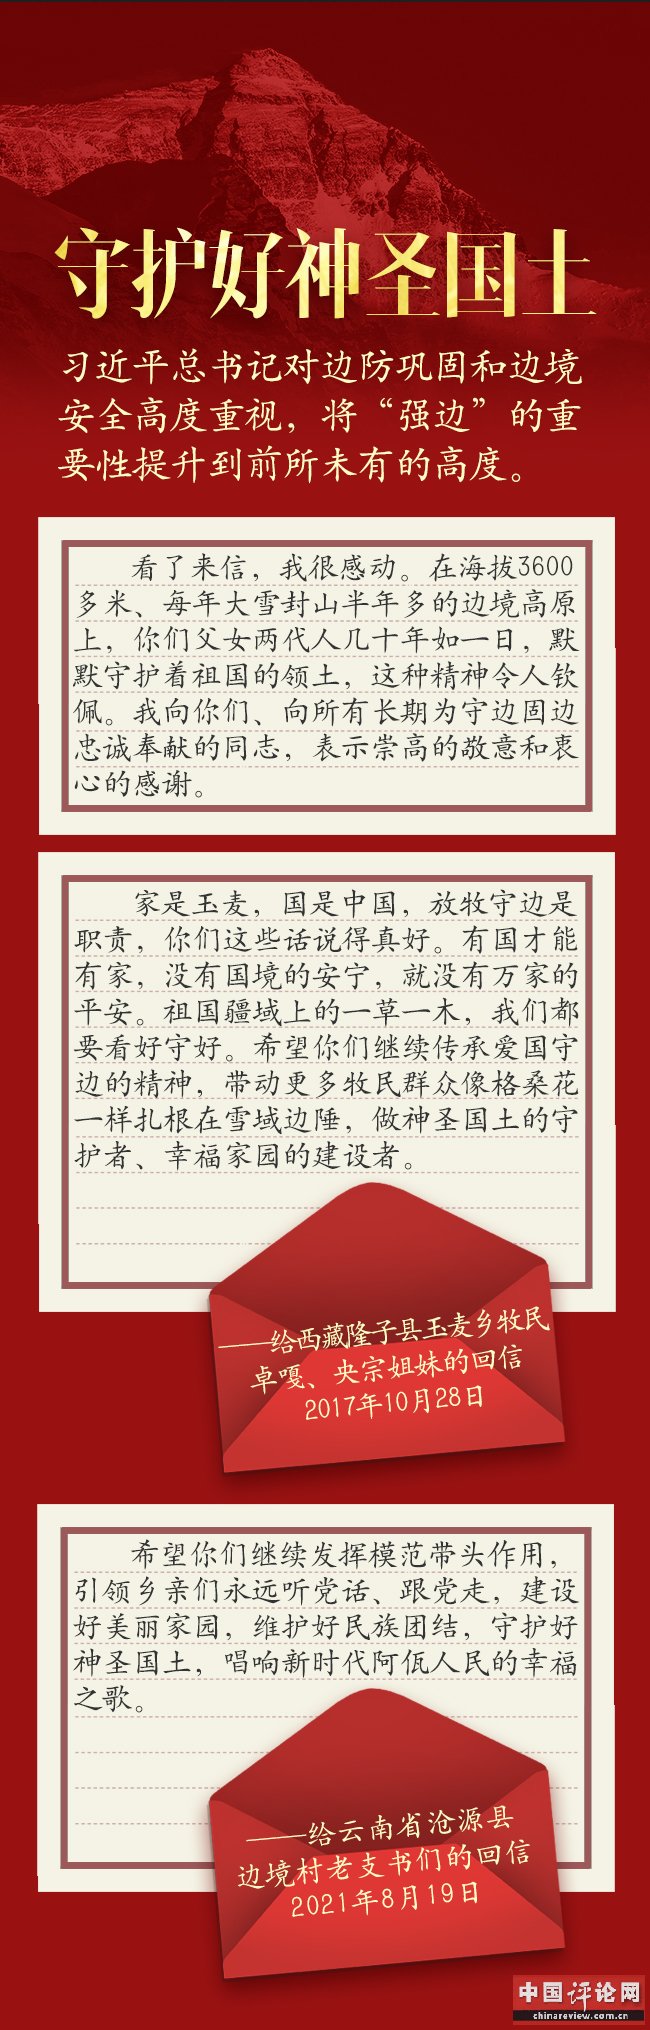 守护好神圣国土
习近平总书记对边防巩固和边境
安全高度重视，将“强边”的重
要性提升到前所未有的高度。
看了来信，我很感动。在海拔3600
多米、每年大雪封山半年多的边境高原
上，你们父女两代人几十年如一日，默
默守护着祖国的领土，这种精神令人钦
佩。我向你们、向所有长期为守边固边
忠诚奉献的同志，表示崇高的敬意和衷
心的感谢。
家是玉麦，国是中国，放牧守边是
职责，你们这些话说得真好。有国才能
有家，没有国境的安宁，就没有万家的
平安。祖国疆域上的一草一木，我们都
要看好守好。希望你们继续传承爱国守
边的精神，带动更多牧民群众像格桑花
一样扎根在雪域边陲，做神圣国土的守
护者、幸福家园的建设者。
——给西藏隆子县玉麦乡牧民
卓嘎、央宗姐妹的回信
2017年10月28日
希望你们继续发挥模范带头作用，
引领乡亲们永远听党话、跟党走，建设
好美丽家园，维护好民族团结，守护好
神圣国土，唱响新时代阿佤人民的幸福
之歌。
——给云南省沧源县
边境村老支书们的回信
2021年8月19日
中国评论网
chinareview.com.cn